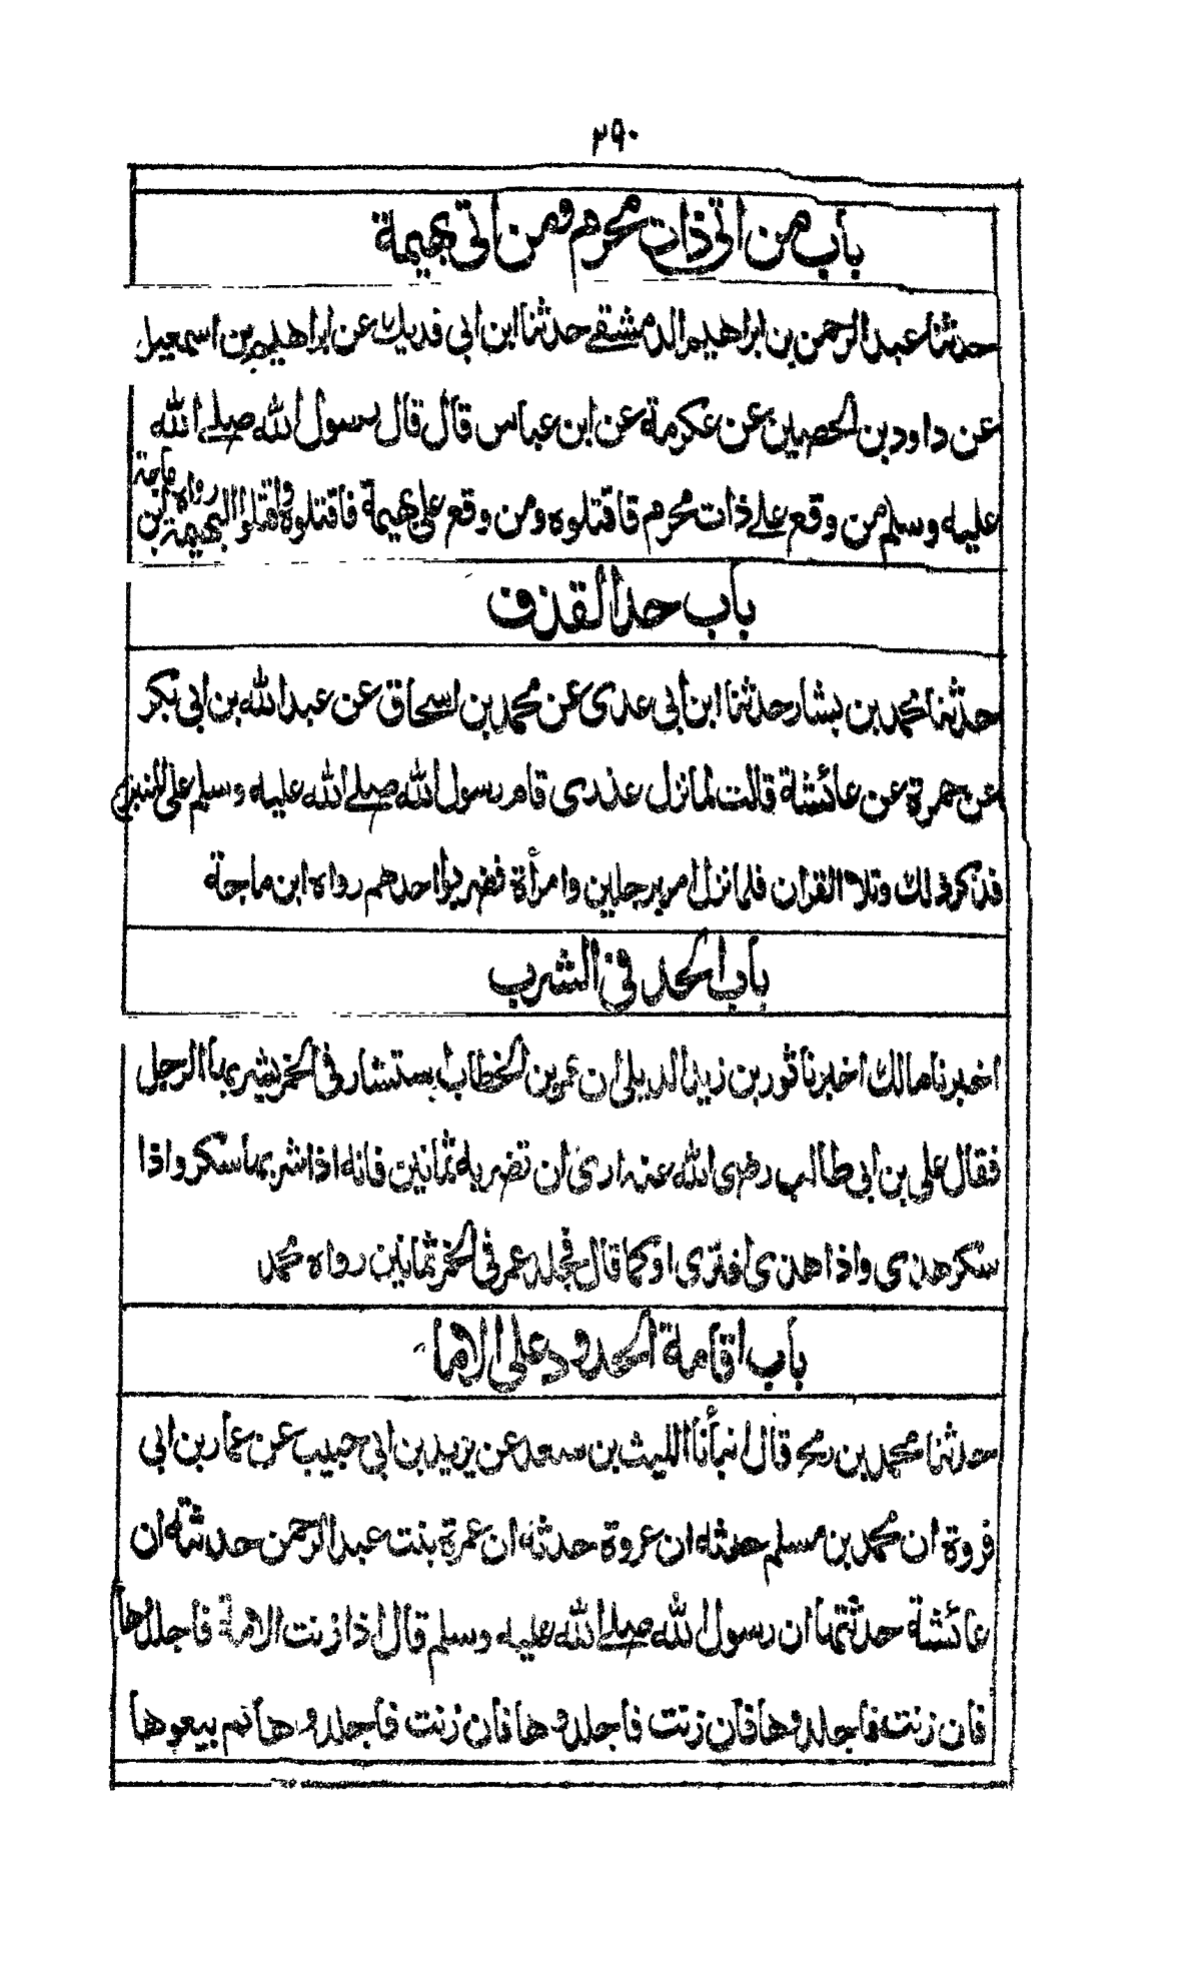 ٢٩٠
باب من اتى ذات محرم ومن اتى بهيمة
حدثنا عبد الرحمن بن ابراهيم الدمشقے حدثنا ابن ابي فديك عن ابراهيم بن اسمعيل
عن داود بن الحصين عن عكرمة عن ابن عباس قال قال رسول الله صلے الله
عليه وسلم من وقع علے ذات محرم فاقتلوه ومن وقع على بهيمة فاقتلوه واقتلوا البهيمة رواه ابن ماجة
باب حد القذف
حدثنا محمد بن بشار حدثنا ابن أبي عدى عن محمد بن اسحاق عن عبد الله بن ابي بكر
عن عمرة عن عائشة قالت لما نزل عذرى قام رسول الله صلے الله عليه وسلم على المنبر
فذكر ذلك وتلا القران فلما نزل امر برجلين وامرأة فضربوا حدهم رواه ابن ماجة
باب الحد في الشرب
اخبرنا مالك اخبرنا ثور بن زيد الديلي ان عمر بن الخطاب استشار في الخمر يشربها الرجل
فقال علي بن ابي طالب رضى الله عنه ارى ان تضربه ثمانين فانه اذا شربها سكر واذا
سكر هذى واذا هذى افترى او كما قال فجلد عمر في الخمر ثمانين رواه محمد
باب اقامة الحدود على الاماء
حدثنا محمد بن رمح قال انبأنا الليث بن سعد عن يزيد بن ابي حبيب عن عمار بن ابي
فروة ان محمد بن مسلم حدثه ان عروة حدثه ان عمرة بنت عبد الرحمن حدثته ان
عائشة حدثتها ان رسول الله صلے الله عليه وسلم قال اذا زنت الامة فاجلدوها
فان زنت فاجلدوها فان زنت فاجلدوها فان زنت فاجلدوها ثم بيعوها